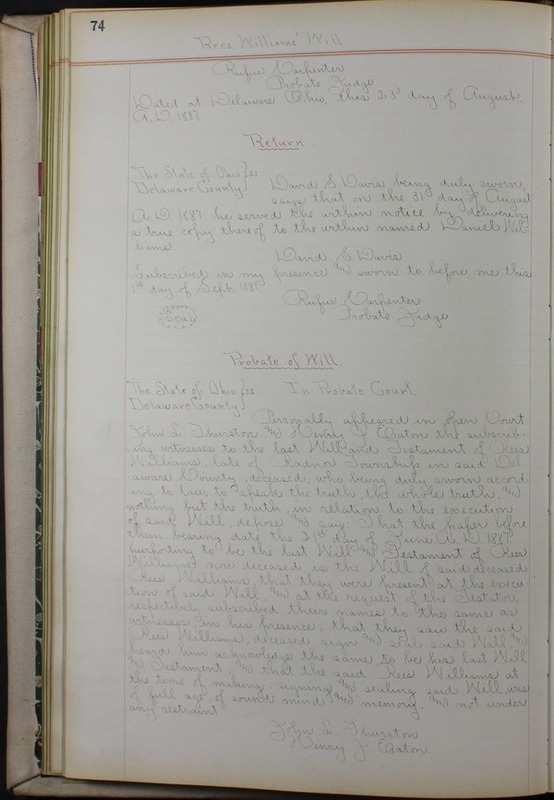 74
Rees Williams' Will
Rufus Carpenter
Probate Judge
Dated at Delaware Ohio, this 23d day of August.
A.D. 1887.
Return
The State of Ohio } ss
Delaware County } David S. Davis being duly sworn,
says that on the 31st day of August
A.D. 1887 he served the within notice by delivering
a true copy thereof to the within named Daniel Wil-
liams.
David S. Davis
Subscribed in my presence and sworn to before me this
1st day of Sept. 1887
Rufus Carpenter
Probate Judge
Seal
Probate of Will.
The State of Ohio } ss In Probate Court.
Delaware County }
Personally appeared in open Court
John L. Thurston and Henry J. Eaton the subscrib-
ing witnesses to the last Will and Testament of Rees
Williams, late of Radnor Township in said Del-
aware County, deceased, who being duly sworn accord-
ing to law, to speak the truth, the whole truth, and
nothing but the truth, in relation to the execution
of said Will, depose and say: That the paper before
them bearing date the 21st day of June A.D. 1887
purporting to be the last Will and Testament of Rees
Williams now deceased is the Will of said deceased
Rees Williams, that they were present at the execu-
tion of said Will and at the request of the Testator
respectively subscribed their names to the same as
witnesses in his presence, that they saw the said
Rees Williams, deceased, sign and seal said Will and
heard him acknowledge the same to be his last Will
and Testament, and that the said Rees Williams at
the time of making, signing and sealing said Will, was
of full age, of sound mind and memory, and not under
any restraint.
John L. Thurston
Henry J. Eaton